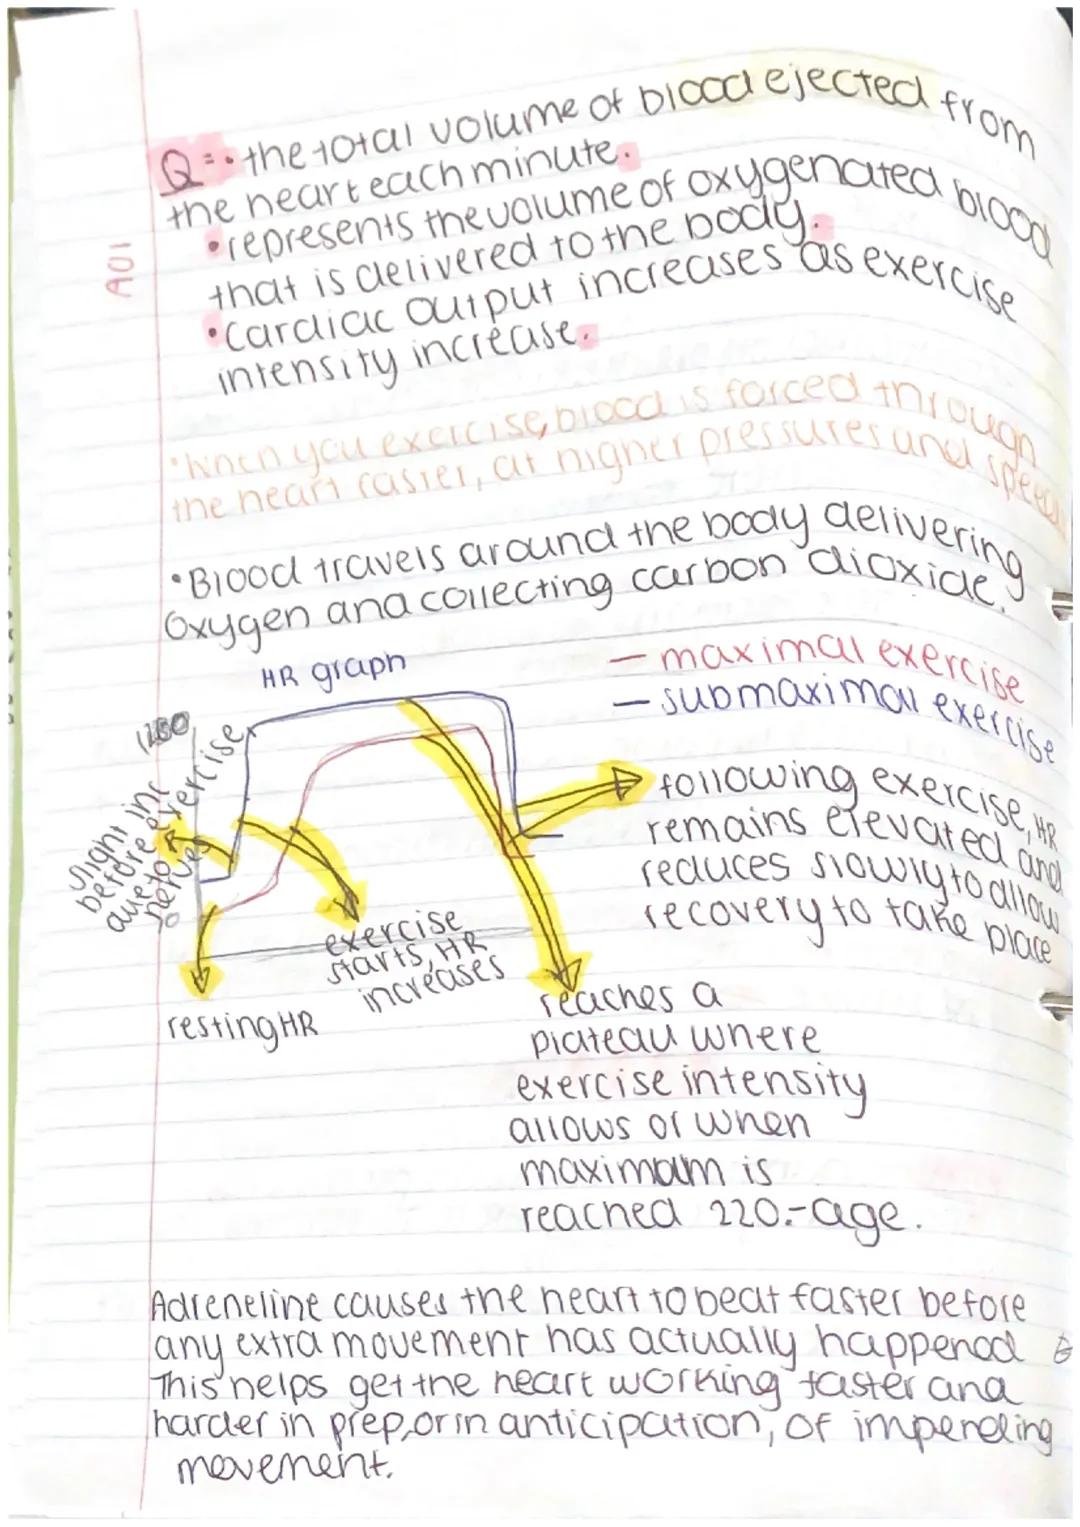 Q = • the total volume of blood ejected from
the heart each minute.
• represents the volume of oxygenated blood
that is delivered to the body.
• Cardiac output increases as exercise
intensity increase.
A01
• When you exercise, blood is forced through
the heart faster, at higher pressures and speed
• Blood travels around the body delivering
Oxygen and collecting carbon dioxide.
HR graph
— maximal exercise
— submaximal exercise
slight inc
before exercise
due to
nerves
0
exercise
starts, HR
increases
resting HR
following exercise, HR
remains elevated and
reduces slowly to allow
recovery to take place
reaches a
plateau where
exercise intensity
allows or when
maximam is
reached 220.-age.
Adreneline causes the heart to beat faster before
any extra movement has actually happened
This helps get the heart working faster and
harder in prep, or in anticipation, of impending
movement.